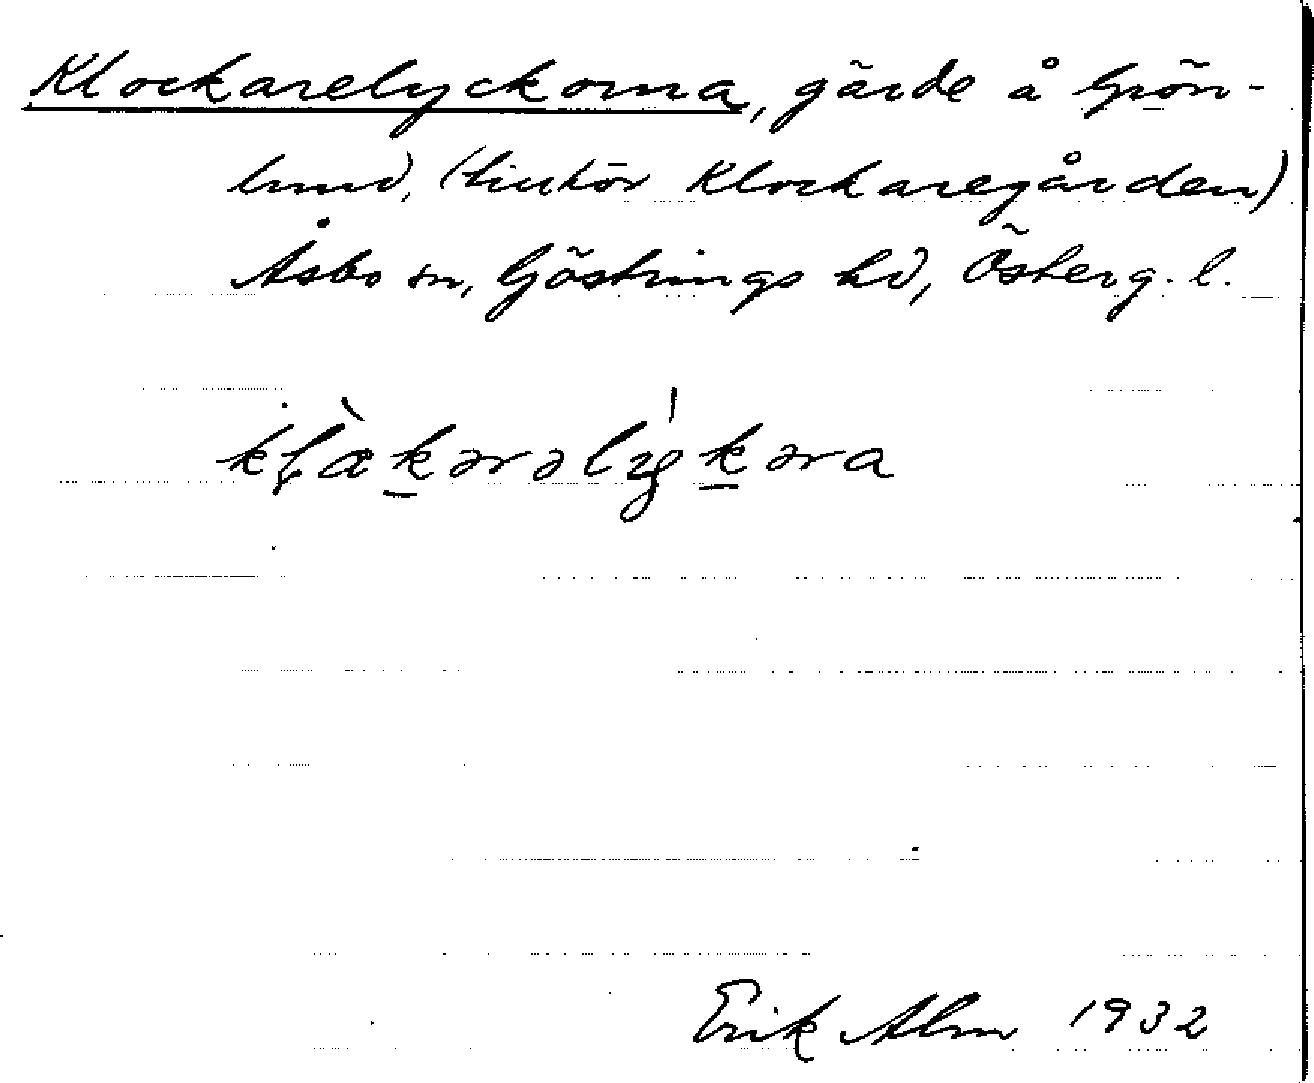 Klockarelyckorna, gärde å Grön-
lund, (tillhör Klockaregården)
Åsbo sn, Göstrings hd, Österg. l.
Erik Alm 1932